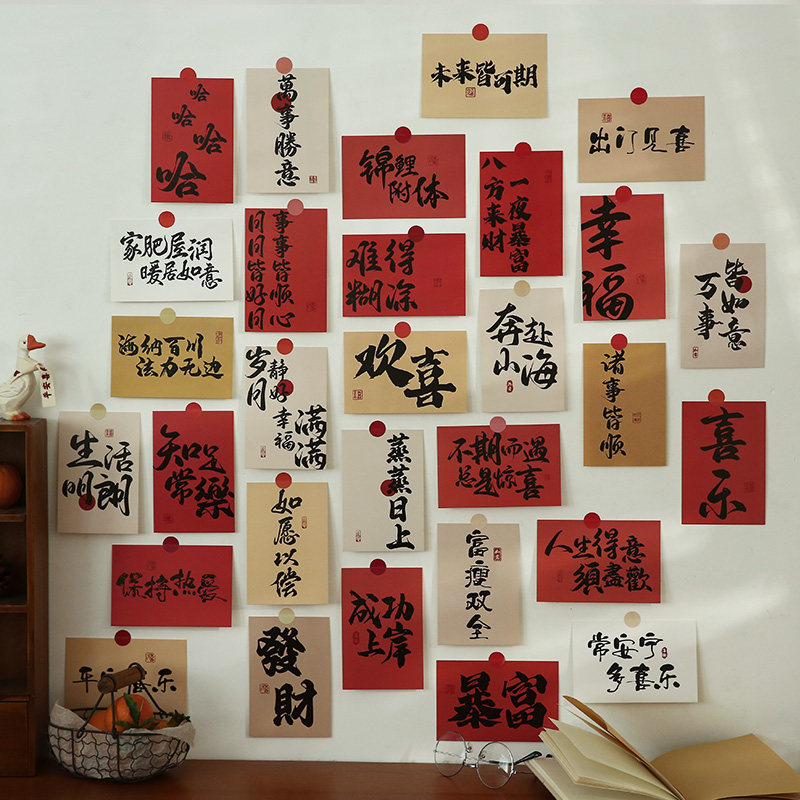 未来皆可期
哈哈哈哈
萬事勝意
出门见喜
锦鲤
附体
一夜暴富
八方来财
幸福
家肥屋润
暖居如意
事事皆顺心
日日皆好日
难得
糊涂
万事
皆如意
海纳百川
法力无边
岁月
静好
幸福
满满
欢喜
奔赴
山海
诸事皆顺
生活
明朗
知足
常樂
蒸蒸日上
不期而遇
总是惊喜
喜乐
如愿以偿
富瘦双全
人生得意
須盡歡
保持热爱
成功
上岸
發財
常安宁
多喜乐
暴富